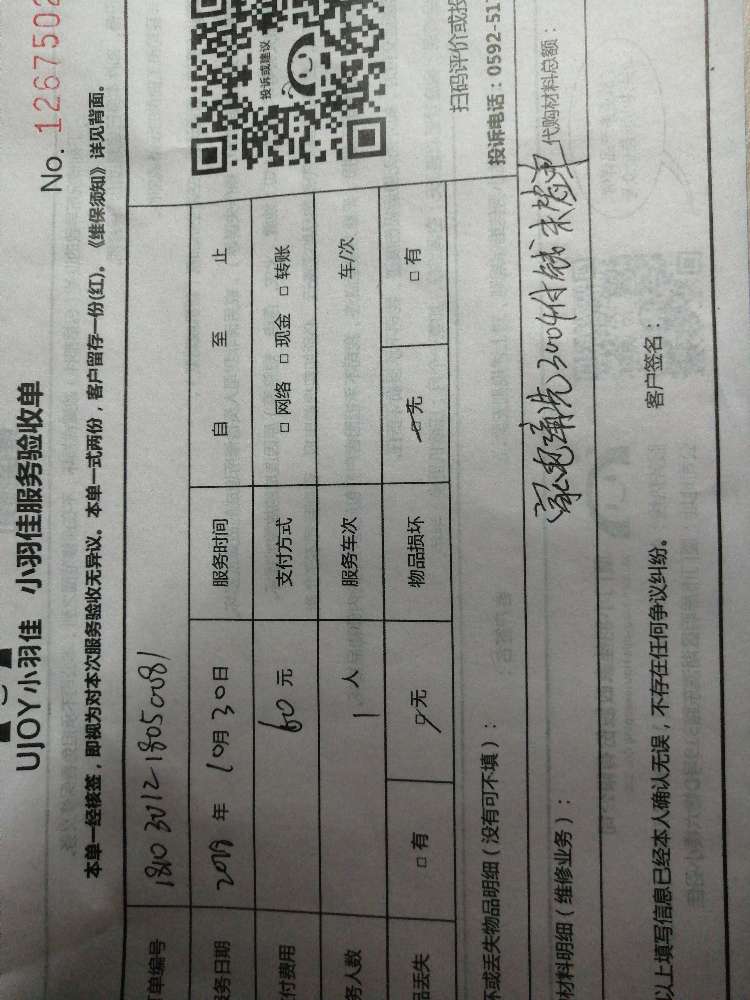 UJOY小羽佳 小羽佳服务验收单
No. 1267502
本单一经核签，即视为对本次服务验收无异议。本单一式两份，客户留存一份(红)。《维保须知》详见背面。
单编号
务日期 年 10月30日 服务时间 自 至 止
付费用 60 元 支付方式 □ 网络 □ 现金 □ 转账
务人数 1 人 服务车次 车/次
品丢失 □ 有 □ 无 物品损坏 □ 无 □ 有
投诉或建议
扫码评价或投
投诉电话：0592-517
坏或丢失物品明细（没有可不填）：
家电清洗 付钱 未签单
材料明细（维修业务）： 代购材料总额：
以上填写信息已经本人确认无误，不存在任何争议纠纷。 客户签名：